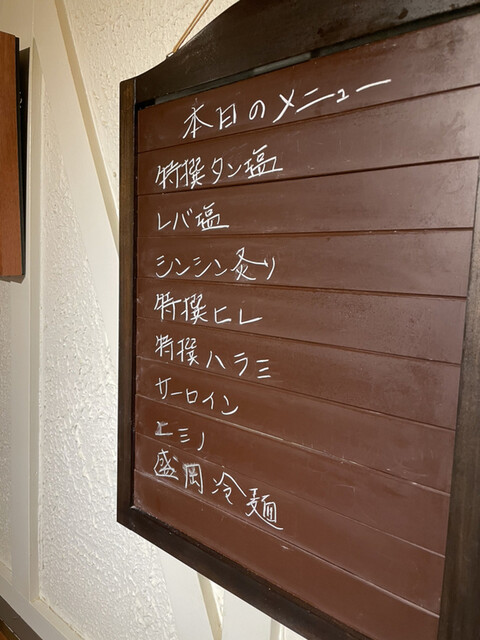 本日のメニュー
特撰タン塩
レバ塩
シンシン炙り
特撰ヒレ
特撰ハラミ
サーロイン
ミノ
盛岡冷麺